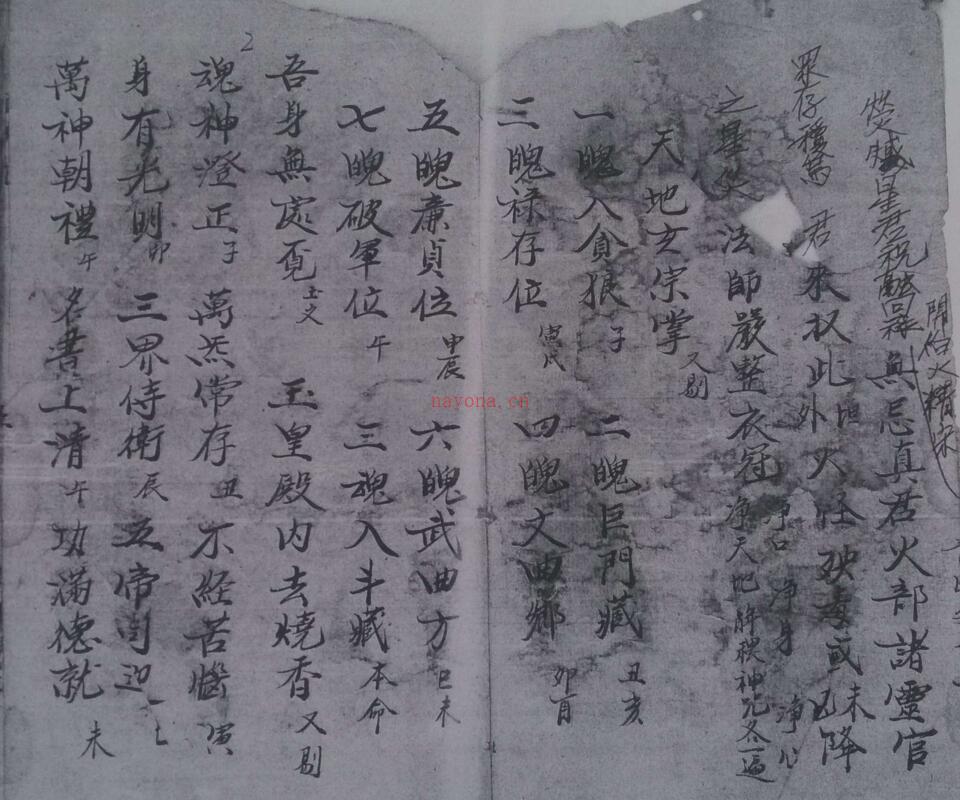 星君祝融 無忌真君火部諸靈官
火精宋
君來 此外火怪殃 或未降
之星災 法師嚴整衣冠 淨口 淨身 淨心
淨天地解穢神咒各一遍
天地玄宗掌 又剔
一魄入貪狼 子 二魄巨門藏 丑亥
三魄祿存位 寅戌 四魄文曲鄉 卯酉
五魄廉貞位 申辰 六魄武曲方 巳未
七魄破軍位 午 三魂入斗藏 本命
吾身無處覓 玉皇殿內去燒香 又剔
魂神澄正 子 萬炁常存 丑 不經苦惱 寅
身有光明 卯 三界侍衛 辰 五帝司迎 巳
萬神朝禮 午 名書上清 午 功滿德就 未
2
nayona.cn